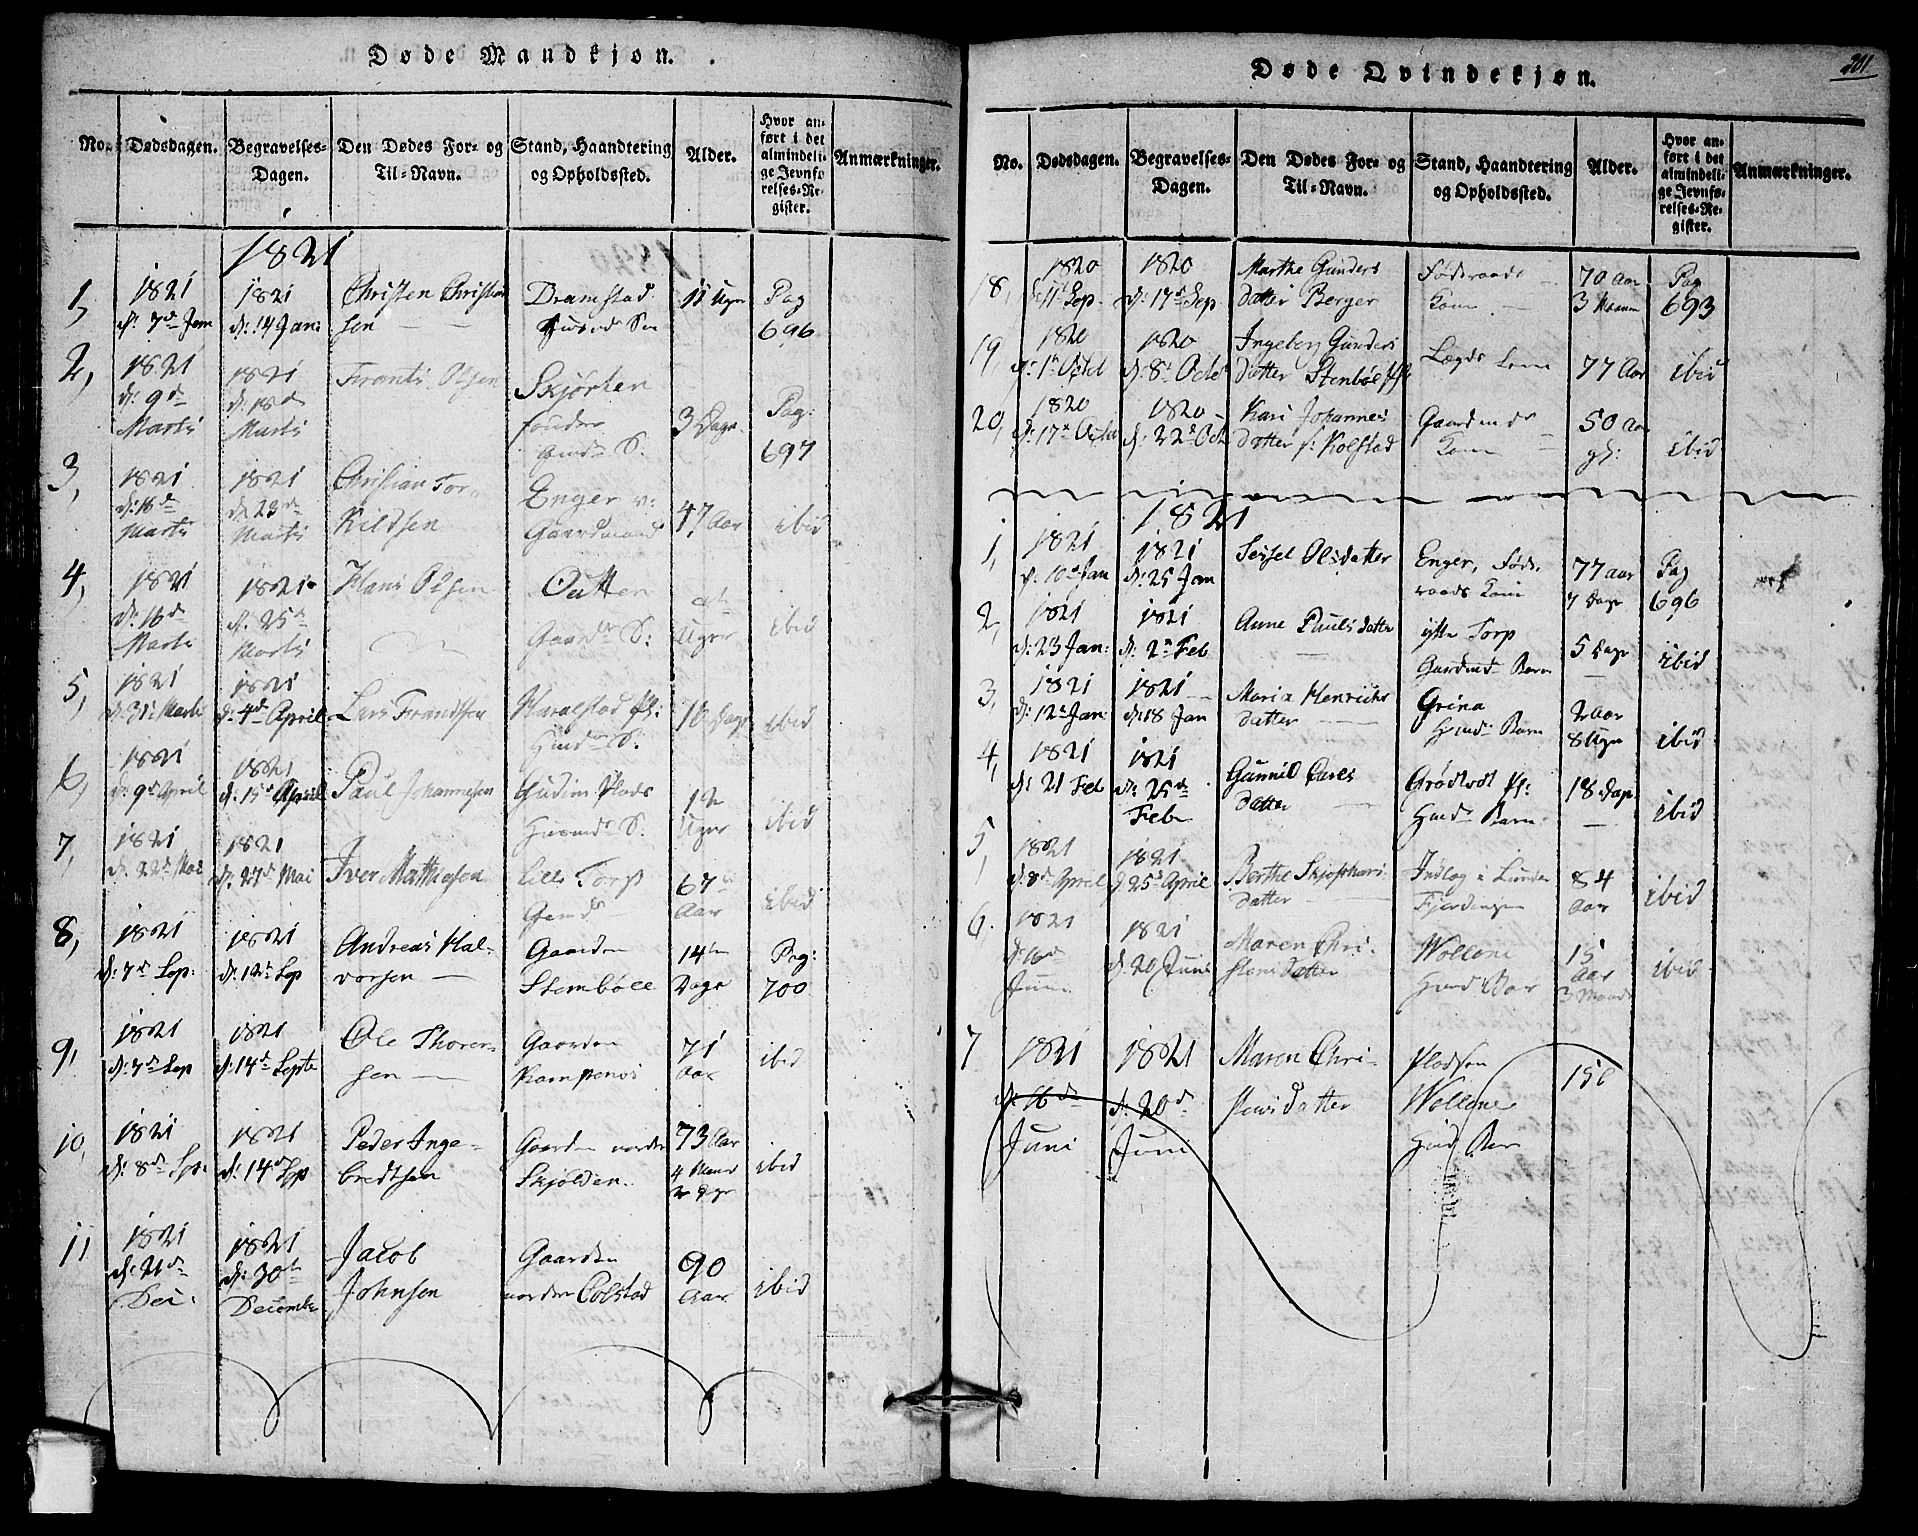 Døde Mandkjøn.
No. Dødsdagen. Begravelses-Dagen. Den Dødes For- og Til-Navn. Stand, Haandtering og Opholdssted. Alder. Hvor anført i det almindelige Jevnførelses-Register. Anmærkninger.
1821
1, 1821 d: 7de Jan 1821 d: 14 Jan: Christen Christiansen Dramstad Huusmd Sn 11 Ugr Pag 696
2, 1821 d: 9de Marti 1821 d: 18de Marti Frants Olsen Skjørten søndre Gmd S: 3 Dage Pag: 697
3, 1821 d: 16de Marti 1821 d: 23de Marti Christian Tor Kildsen Enger v: Gaardmand 47 Aar ibid
4, 1821 d: 16de Marti 1821 d: 25de Marti Hans Olsen Outten Gaardmr S: Uger ibid
5, 1821 d: 31 Marti 1821 d: 4de April Lars Frandsen Haralstad Pl: Hmd S: 10 Dage ibid
6, 1821 d: 9de April 1821 d: 15de April Paul Johannesen Gudim Plads Huusmd S: 12 Uger ibid
7, 1821 d: 22de Mai 1821 d: 27de Mai Iver Mathiesen Lille Torp Gmd 67 Aar ibid
8, 1821 d: 7de Sep: 1821 d: 12te Sep Andreas Halvorsen Gaarden Stombøll 14ten Dage Pag: 700
9, 1821 d: 7de Sep 1821 d: 14de Septe Ole Thoresen Gaarden Kampenes 71 Aar ibid
10, 1821 d: 8de Sep: 1821 d: 14de Sep Peder Ingebredtsen Gaarden nordre Skjølden. 73 Aar 4 Maand 2 Dage ibid
11 1821 d: 21de Dec: 1821 d: 30te December Jacob Johnsen Gaarden nordre Colstad 90 Aar ibid
Døde Qvindekjøn.
201
No. Dødsdagen. Begravelses-Dagen. Den Dødes For- og Til-Navn. Stand, Haandtering og Opholdssted. Alder. Hvor anført i det almindelige Jevnførelses-Register. Anmærkninger.
18, 1820 d: 11te Sep 1820 d: 17de Sep Marthe Gunders datter Berger Føderaads Kone 70 Aar 3 Maan Pag 693
19, 1820 d: 1te Octbr 1820 d: 8de Octbr Ingeborg Gunders datter Stenbøl Lægds Lem 77 Aar ibid
20, 1820 d: 17de Octbr 1820 d: 22de Oct Kari Johannes datter s: Kolstad Gaardmds Kone 50 Aar gl: ibid
1821
1, 1821 d: 10de Jan 1821 d: 25 Jan Seisel Olsdatter Enger, Føderaads Koni 77 aar 7 Dage Pag 696
2, 1821 d: 23 Jan: 1821 d: 2de Feb Anne Paulsdatter ytte Torp Gardmd Barn 5 Dage ibid
3, 1821 d: 12te Jan: 1821 d: 18 Jan Maria Henriks datter Grina Hmd Barn 2 Aar 8 Ugr ibid
4, 1821 d: 21 Feb 1821 d: 25de Febr Gunnild Lares datter Grødtvedt Pl: Hmd Barn 18 Dage ibid
5, 1821 d: 8de April 1821 d: 25de April Berthe datter Indlag i Lunder Fjerdingen 84 Aar ibid
6. 1821 d: 16de Juni 1821 d: 20 Juni Maren Christensdatter Wollene Hmd Bar 15 Aar 3 Maand ibid
7 1821 d: 16de Juni 1821 d: 20de Juni Maren Christensdatter Pladsen Wollene Hmd Bar 15